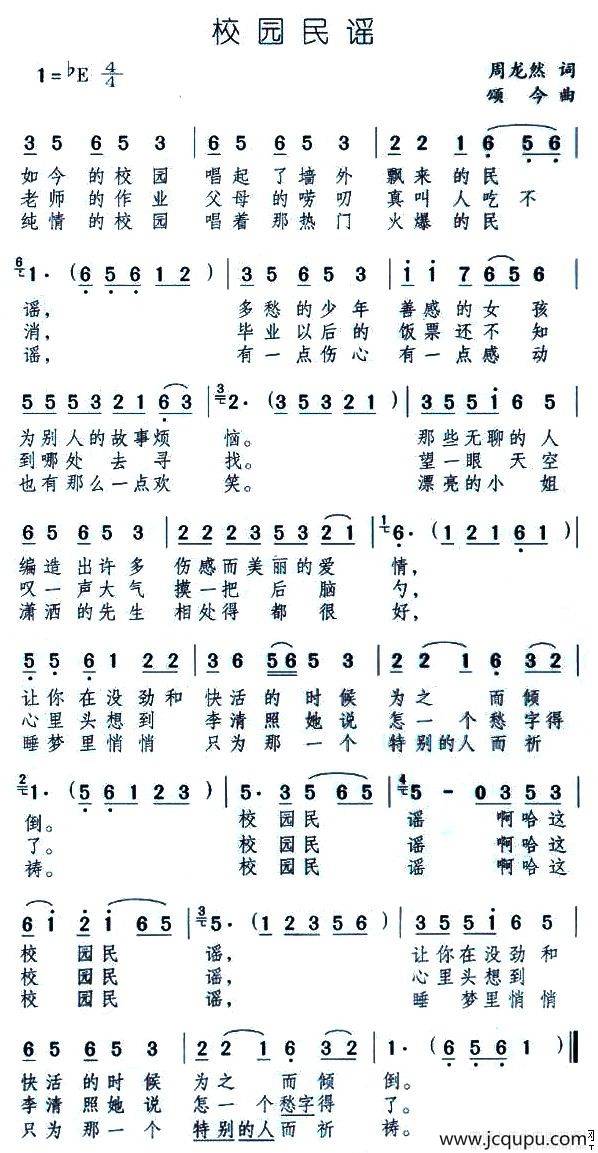 校园民谣
1=♭E 4/4
周龙然 词
颂 今 曲
3 5 6 5 3 | 6 5 6 5 3 | 2 2 1 6 5 6 |
如今的校园 唱起了墙外 飘来的民
老师的作业 父母的唠叨 真叫人吃不
纯情的校园 唱着那热门 火爆的民
1· (6 5 6 1 2) | 3 5 6 5 3 | i i 7 6 5 6 |
谣, 多愁的少年 善感的女孩
消, 毕业以后的 饭票还不知
谣, 有一点伤心 有一点感动
5 5 5 3 2 1 6 3 | 2· (3 5 3 2 1) | 3 5 5 i 6 5 |
为别人的故事烦 恼。 那些无聊的人
到哪处去寻 找。 望一眼天空
也有那么一点欢 笑。 漂亮的小姐
6 5 6 5 3 | 2 2 2 3 5 3 2 1 | 6· (1 2 1 6 1) |
编造出许多 伤感而美丽的爱 情,
叹一声大气 摸一把后脑 勺,
潇洒的先生 相处得都很 好,
5 5 6 1 2 2 | 3 6 5 6 5 3 | 2 2 1 6 3 2 |
让你在没劲和 快活的时候 为之而倾
心里头想到 李清照她说 怎一个愁字得
睡梦里悄悄 只为那一个 特别的人而祈
1· (5 6 1 2 3) | 5· 3 5 6 5 | 5 - 0 3 5 3 |
倒。 校园民 谣 啊哈这
了。 校园民 谣 啊哈这
祷。 校园民 谣 啊哈这
6 i 2 i 6 5 | 5· (1 2 3 5 6) | 3 5 5 i 6 5 |
校园民 谣, 让你在没劲和
校园民 谣, 心里头想到
校园民 谣, 睡梦里悄悄
6 5 6 5 3 | 2 2 1 6 3 2 | 1· (6 5 6 1) ‖
快活的时候 为之而倾 倒。
李清照她说 怎一个愁字得 了。
只为那一个 特别的人而祈 祷。
www.jcqupu.com